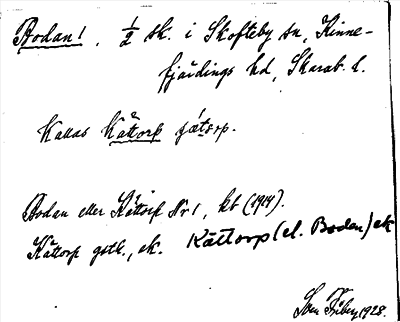 Bodan 1, 1/2 sk. i Skofteby sn, Kinne-
fjärdings hd, Skarab. l.
Kallas Kåttorp
Bodan eller Kåttorp Nr 1, kb (1914).
Kåttorp gstl., ek. Kåttorp (el. Bodan) ek
1928.